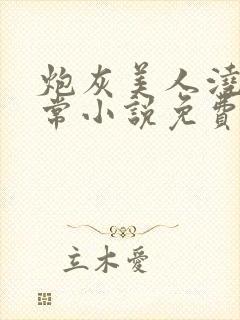 炮灰美人澆
常小說免費
立木愛